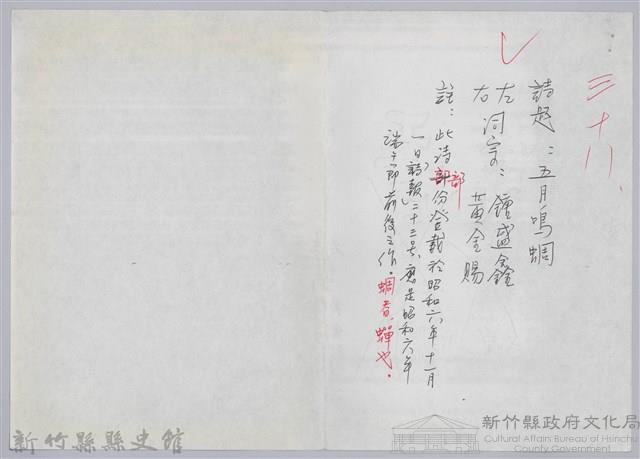 三十八、
詩題：五月鳴蜩
左詞宗：鍾盛鑫
右　　　黃金賜
註：此詩部份登載於昭和六年十一月
一日「詩報」二十三号，應是昭和六年
端午節前後之作。蜩者，蟬也。
新竹縣縣史館
新竹縣政府文化局
Cultural Affairs Bureau of Hsinchu
County Government